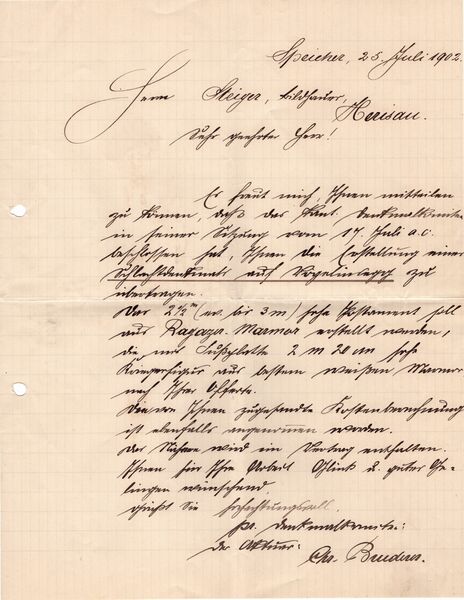 Speicher, 25. Juli 1902.
Herrn Steiger, Bildhauer,
Herisau.
Sehr geehrter Herr!
Es freut mich, Ihnen mitteilen
zu können, daß das kant. Denkmalkomitee
in seiner Sitzung vom 17. Juli a.c.
beschlossen hat, Ihnen die Erstellung eines
Schlachtdenkmals auf Vögelinsegg zu
übertragen.
Das 2½ m (ev. bis 3 m) hohe Postament soll
aus Ragazer Marmor erstellt werden,
die mit Fußplatte 2 m 20 cm hohe
Kriegerfigur aus bestem weißen Marmor
nach Ihrer Offerte.
Die von Ihnen zugesandte Kostenberechnung
ist ebenfalls angenommen worden.
Das Nähere wird ein Vertrag enthalten.
Ihnen für Ihre Arbeit Glück u. gutes Ge-
lingen wünschend,
grüßt Sie hochachtungsvoll
pr. Denkmalkomite:
der Aktuar:
Chr. Bruderer.